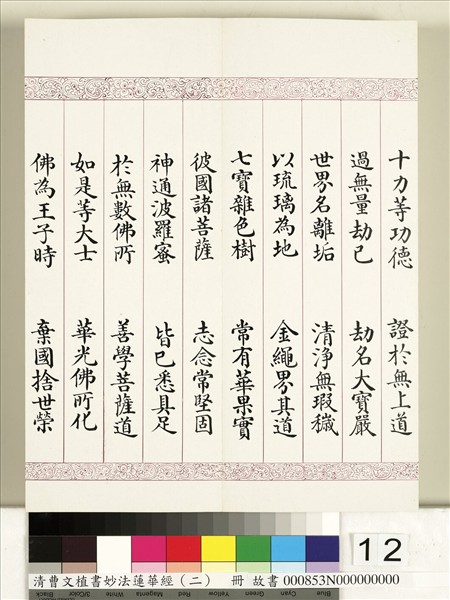 十力等功德　證於無上道
過無量劫已　劫名大寶嚴
世界名離垢　清淨無瑕穢
以琉璃為地　金繩界其道
七寶雜色樹　常有華果實
彼國諸菩薩　志念常堅固
神通波羅蜜　皆已悉具足
於無數佛所　善學菩薩道
如是等大士　華光佛所化
佛為王子時　棄國捨世榮
12
清曹文植書妙法蓮華經（二）　冊　故書 000853N000000000
Black 3/Color White Magenta Red Yellow Green Cyan Blue